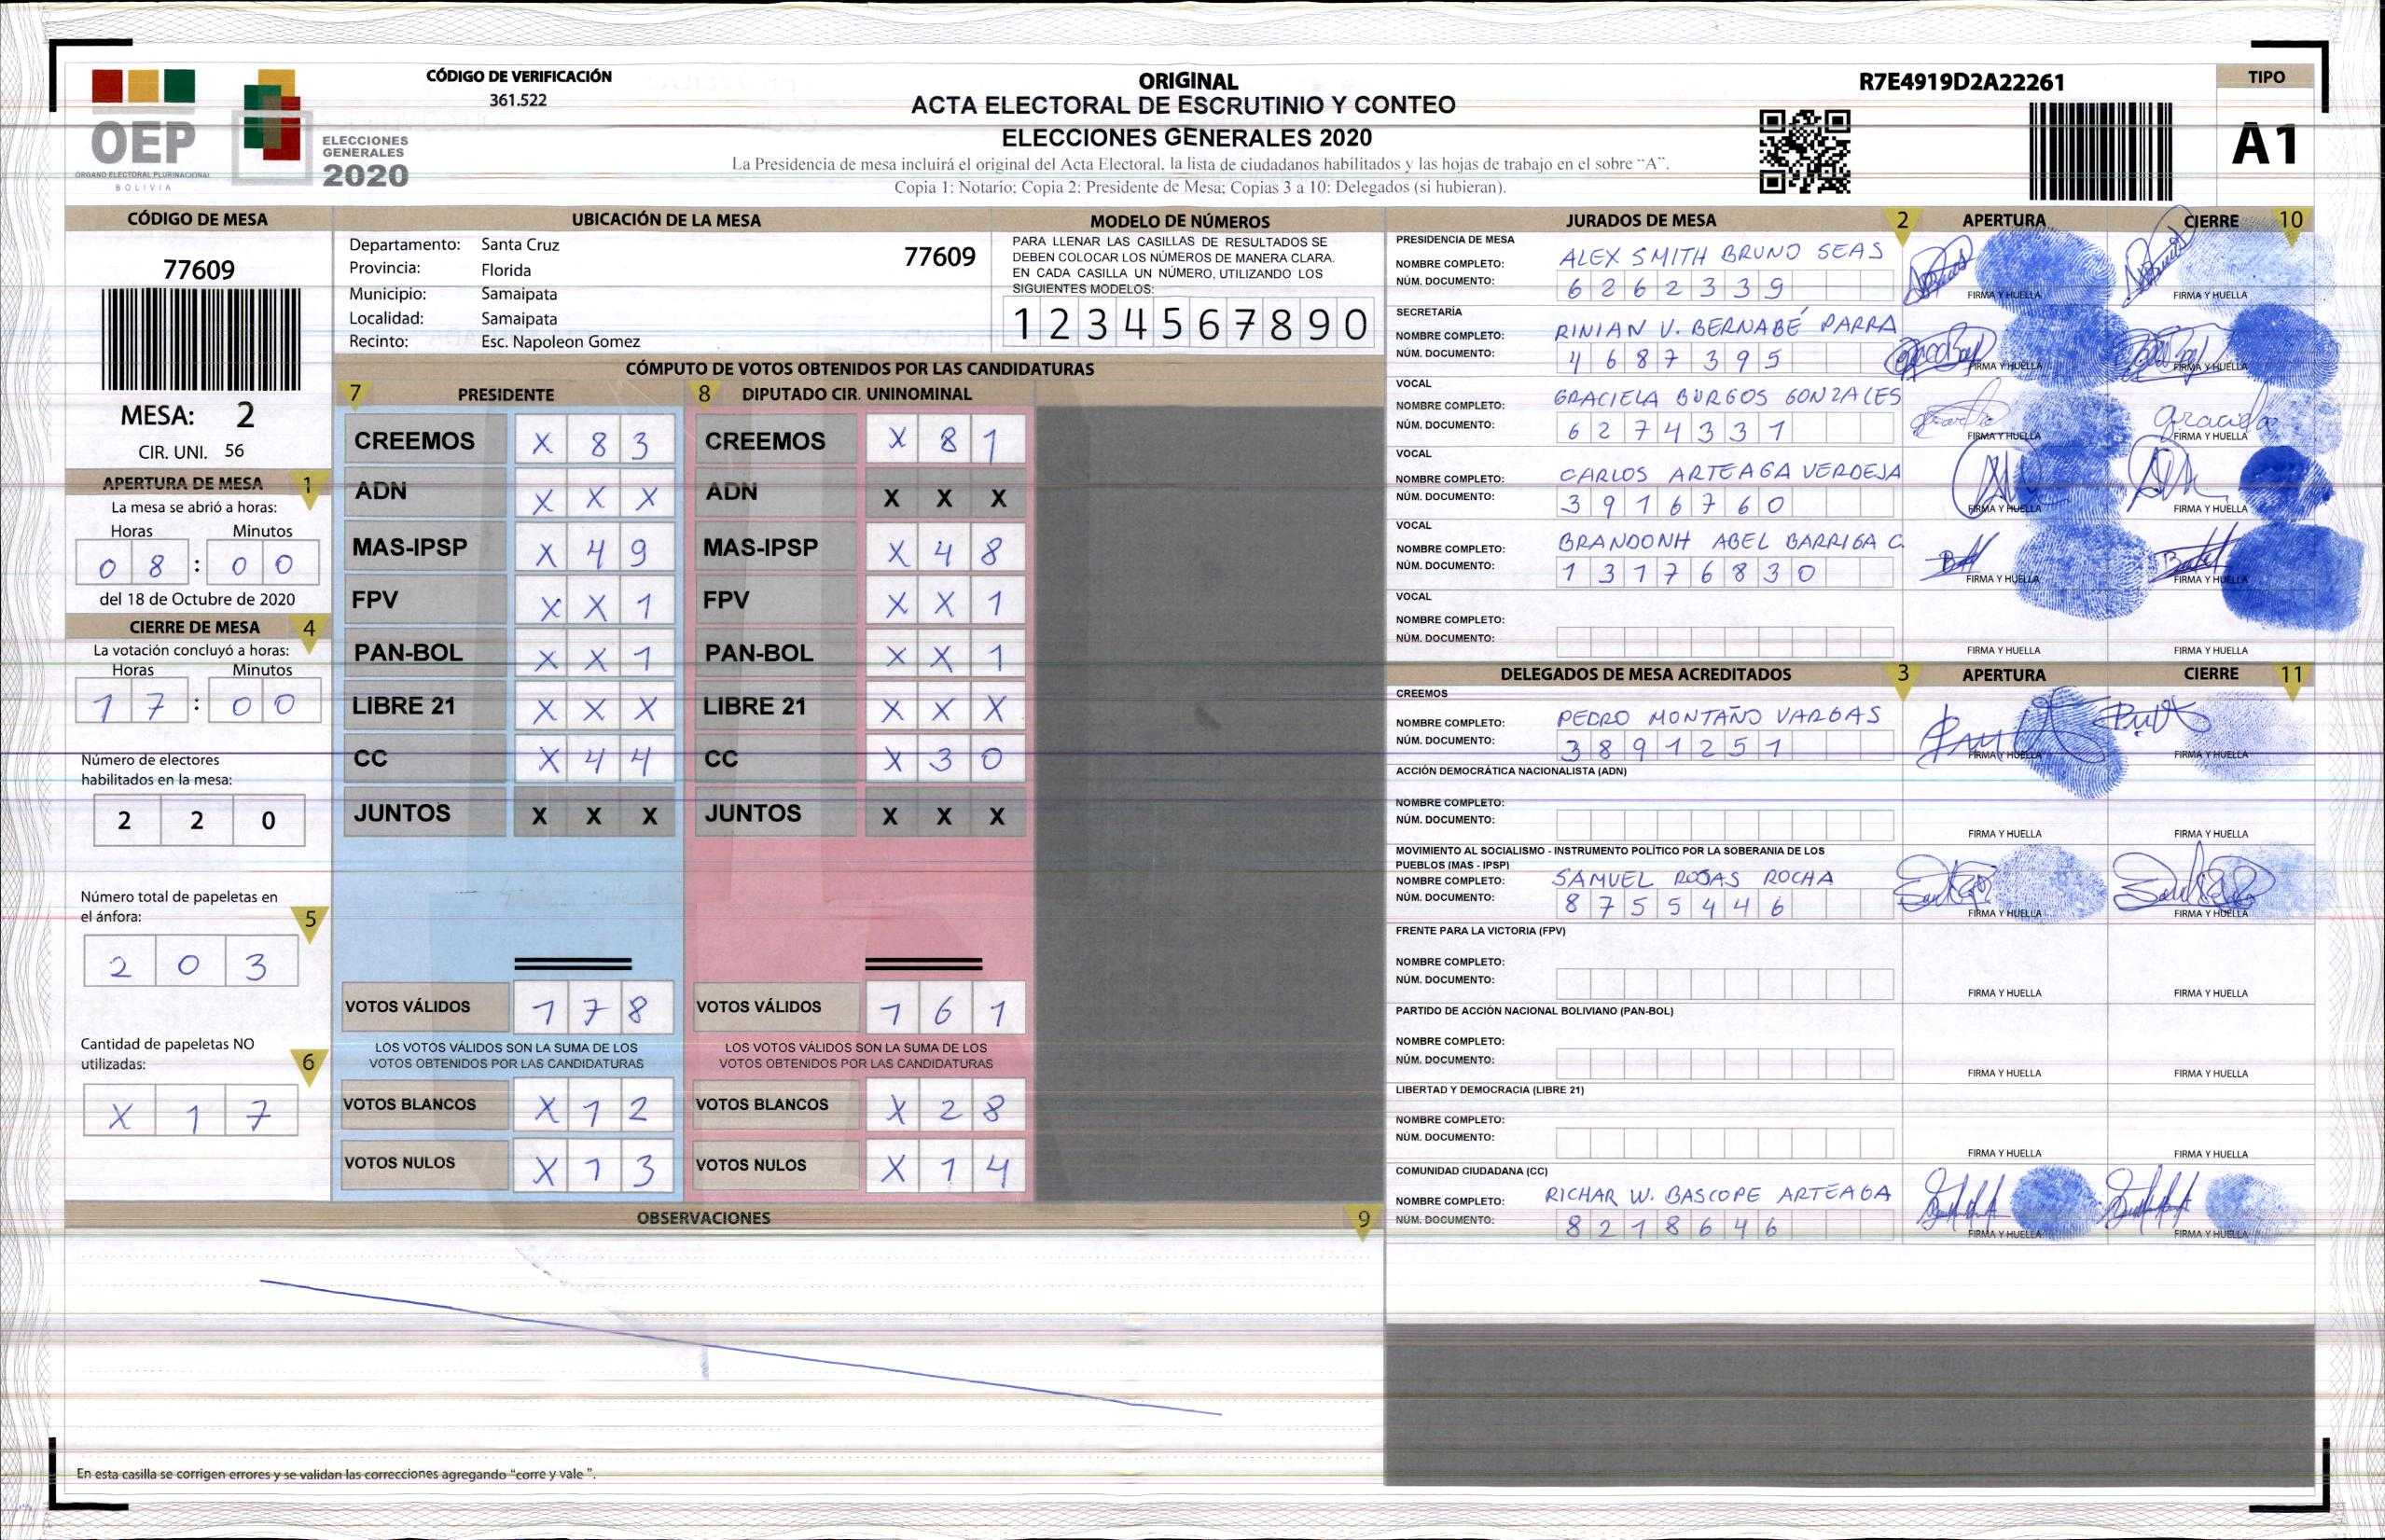 OEP
ÓRGANO ELECTORAL PLURINACIONAL
BOLIVIA
ELECCIONES
GENERALES
2020
CÓDIGO DE VERIFICACIÓN
361.522
ORIGINAL
ACTA ELECTORAL DE ESCRUTINIO Y CONTEO
ELECCIONES GENERALES 2020
La Presidencia de mesa incluirá el original del Acta Electoral, la lista de ciudadanos habilitados y las hojas de trabajo en el sobre “A”.
Copia 1: Notario; Copia 2: Presidente de Mesa; Copias 3 a 10: Delegados (si hubieran).
R7E4919D2A22261
TIPO
A1
CÓDIGO DE MESA
77609
MESA: 2
CIR. UNI. 56
APERTURA DE MESA 1
La mesa se abrió a horas:
Horas Minutos
0 8 : 0 0
del 18 de Octubre de 2020
CIERRE DE MESA 4
La votación concluyó a horas:
Horas Minutos
1 7 : 0 0
Número de electores
habilitados en la mesa:
2 2 0
Número total de papeletas en
el ánfora: 5
2 0 3
Cantidad de papeletas NO
utilizadas: 6
X 1 7
UBICACIÓN DE LA MESA
Departamento: Santa Cruz 77609
Provincia: Florida
Municipio: Samaipata
Localidad: Samaipata
Recinto: Esc. Napoleon Gomez
MODELO DE NÚMEROS
PARA LLENAR LAS CASILLAS DE RESULTADOS SE
DEBEN COLOCAR LOS NÚMEROS DE MANERA CLARA.
EN CADA CASILLA UN NÚMERO, UTILIZANDO LOS
SIGUIENTES MODELOS:
1 2 3 4 5 6 7 8 9 0
CÓMPUTO DE VOTOS OBTENIDOS POR LAS CANDIDATURAS
7 PRESIDENTE
CREEMOS X 8 3
ADN X X X
MAS-IPSP X 4 9
FPV X X 1
PAN-BOL X X 1
LIBRE 21 X X X
CC X 4 4
JUNTOS X X X
VOTOS VÁLIDOS 1 7 8
LOS VOTOS VÁLIDOS SON LA SUMA DE LOS
VOTOS OBTENIDOS POR LAS CANDIDATURAS
VOTOS BLANCOS X 1 2
VOTOS NULOS X 1 3
8 DIPUTADO CIR. UNINOMINAL
CREEMOS X 8 1
ADN X X X
MAS-IPSP X 4 8
FPV X X 1
PAN-BOL X X 1
LIBRE 21 X X X
CC X 3 0
JUNTOS X X X
VOTOS VÁLIDOS 1 6 1
LOS VOTOS VÁLIDOS SON LA SUMA DE LOS
VOTOS OBTENIDOS POR LAS CANDIDATURAS
VOTOS BLANCOS X 2 8
VOTOS NULOS X 1 4
OBSERVACIONES 9
En esta casilla se corrigen errores y se validan las correcciones agregando “corre y vale ”.
JURADOS DE MESA 2 APERTURA CIERRE 10
PRESIDENCIA DE MESA
NOMBRE COMPLETO: ALEX SMITH BRUNO SEAS
NÚM. DOCUMENTO: 6 2 6 2 3 3 9
FIRMA Y HUELLA FIRMA Y HUELLA
SECRETARÍA
NOMBRE COMPLETO: RINIAN V. BERNABÉ PARRA
NÚM. DOCUMENTO: 4 6 8 7 3 9 5
FIRMA Y HUELLA FIRMA Y HUELLA
VOCAL
NOMBRE COMPLETO: GRACIELA BURGOS GONZALES
NÚM. DOCUMENTO: 6 2 7 4 3 3 1
Graciela
FIRMA Y HUELLA FIRMA Y HUELLA
VOCAL
NOMBRE COMPLETO: CARLOS ARTEAGA VERDEJA
NÚM. DOCUMENTO: 3 9 1 6 7 6 0
FIRMA Y HUELLA FIRMA Y HUELLA
VOCAL
NOMBRE COMPLETO: BRANDONH ABEL BARRIGA C.
NÚM. DOCUMENTO: 1 3 1 7 6 8 3 0
FIRMA Y HUELLA FIRMA Y HUELLA
VOCAL
NOMBRE COMPLETO:
NÚM. DOCUMENTO:
FIRMA Y HUELLA FIRMA Y HUELLA
DELEGADOS DE MESA ACREDITADOS 3 APERTURA CIERRE 11
CREEMOS
NOMBRE COMPLETO: PEDRO MONTAÑO VARGAS
NÚM. DOCUMENTO: 3 8 9 1 2 5 1
FIRMA Y HUELLA FIRMA Y HUELLA
ACCIÓN DEMOCRÁTICA NACIONALISTA (ADN)
NOMBRE COMPLETO:
NÚM. DOCUMENTO:
FIRMA Y HUELLA FIRMA Y HUELLA
MOVIMIENTO AL SOCIALISMO - INSTRUMENTO POLÍTICO POR LA SOBERANIA DE LOS
PUEBLOS (MAS - IPSP)
NOMBRE COMPLETO: SAMUEL ROJAS ROCHA
NÚM. DOCUMENTO: 8 7 5 5 4 4 6
FIRMA Y HUELLA FIRMA Y HUELLA
FRENTE PARA LA VICTORIA (FPV)
NOMBRE COMPLETO:
NÚM. DOCUMENTO:
FIRMA Y HUELLA FIRMA Y HUELLA
PARTIDO DE ACCIÓN NACIONAL BOLIVIANO (PAN-BOL)
NOMBRE COMPLETO:
NÚM. DOCUMENTO:
FIRMA Y HUELLA FIRMA Y HUELLA
LIBERTAD Y DEMOCRACIA (LIBRE 21)
NOMBRE COMPLETO:
NÚM. DOCUMENTO:
FIRMA Y HUELLA FIRMA Y HUELLA
COMUNIDAD CIUDADANA (CC)
NOMBRE COMPLETO: RICHAR W. BASCOPE ARTEAGA
NÚM. DOCUMENTO: 8 2 1 8 6 4 6
FIRMA Y HUELLA FIRMA Y HUELLA